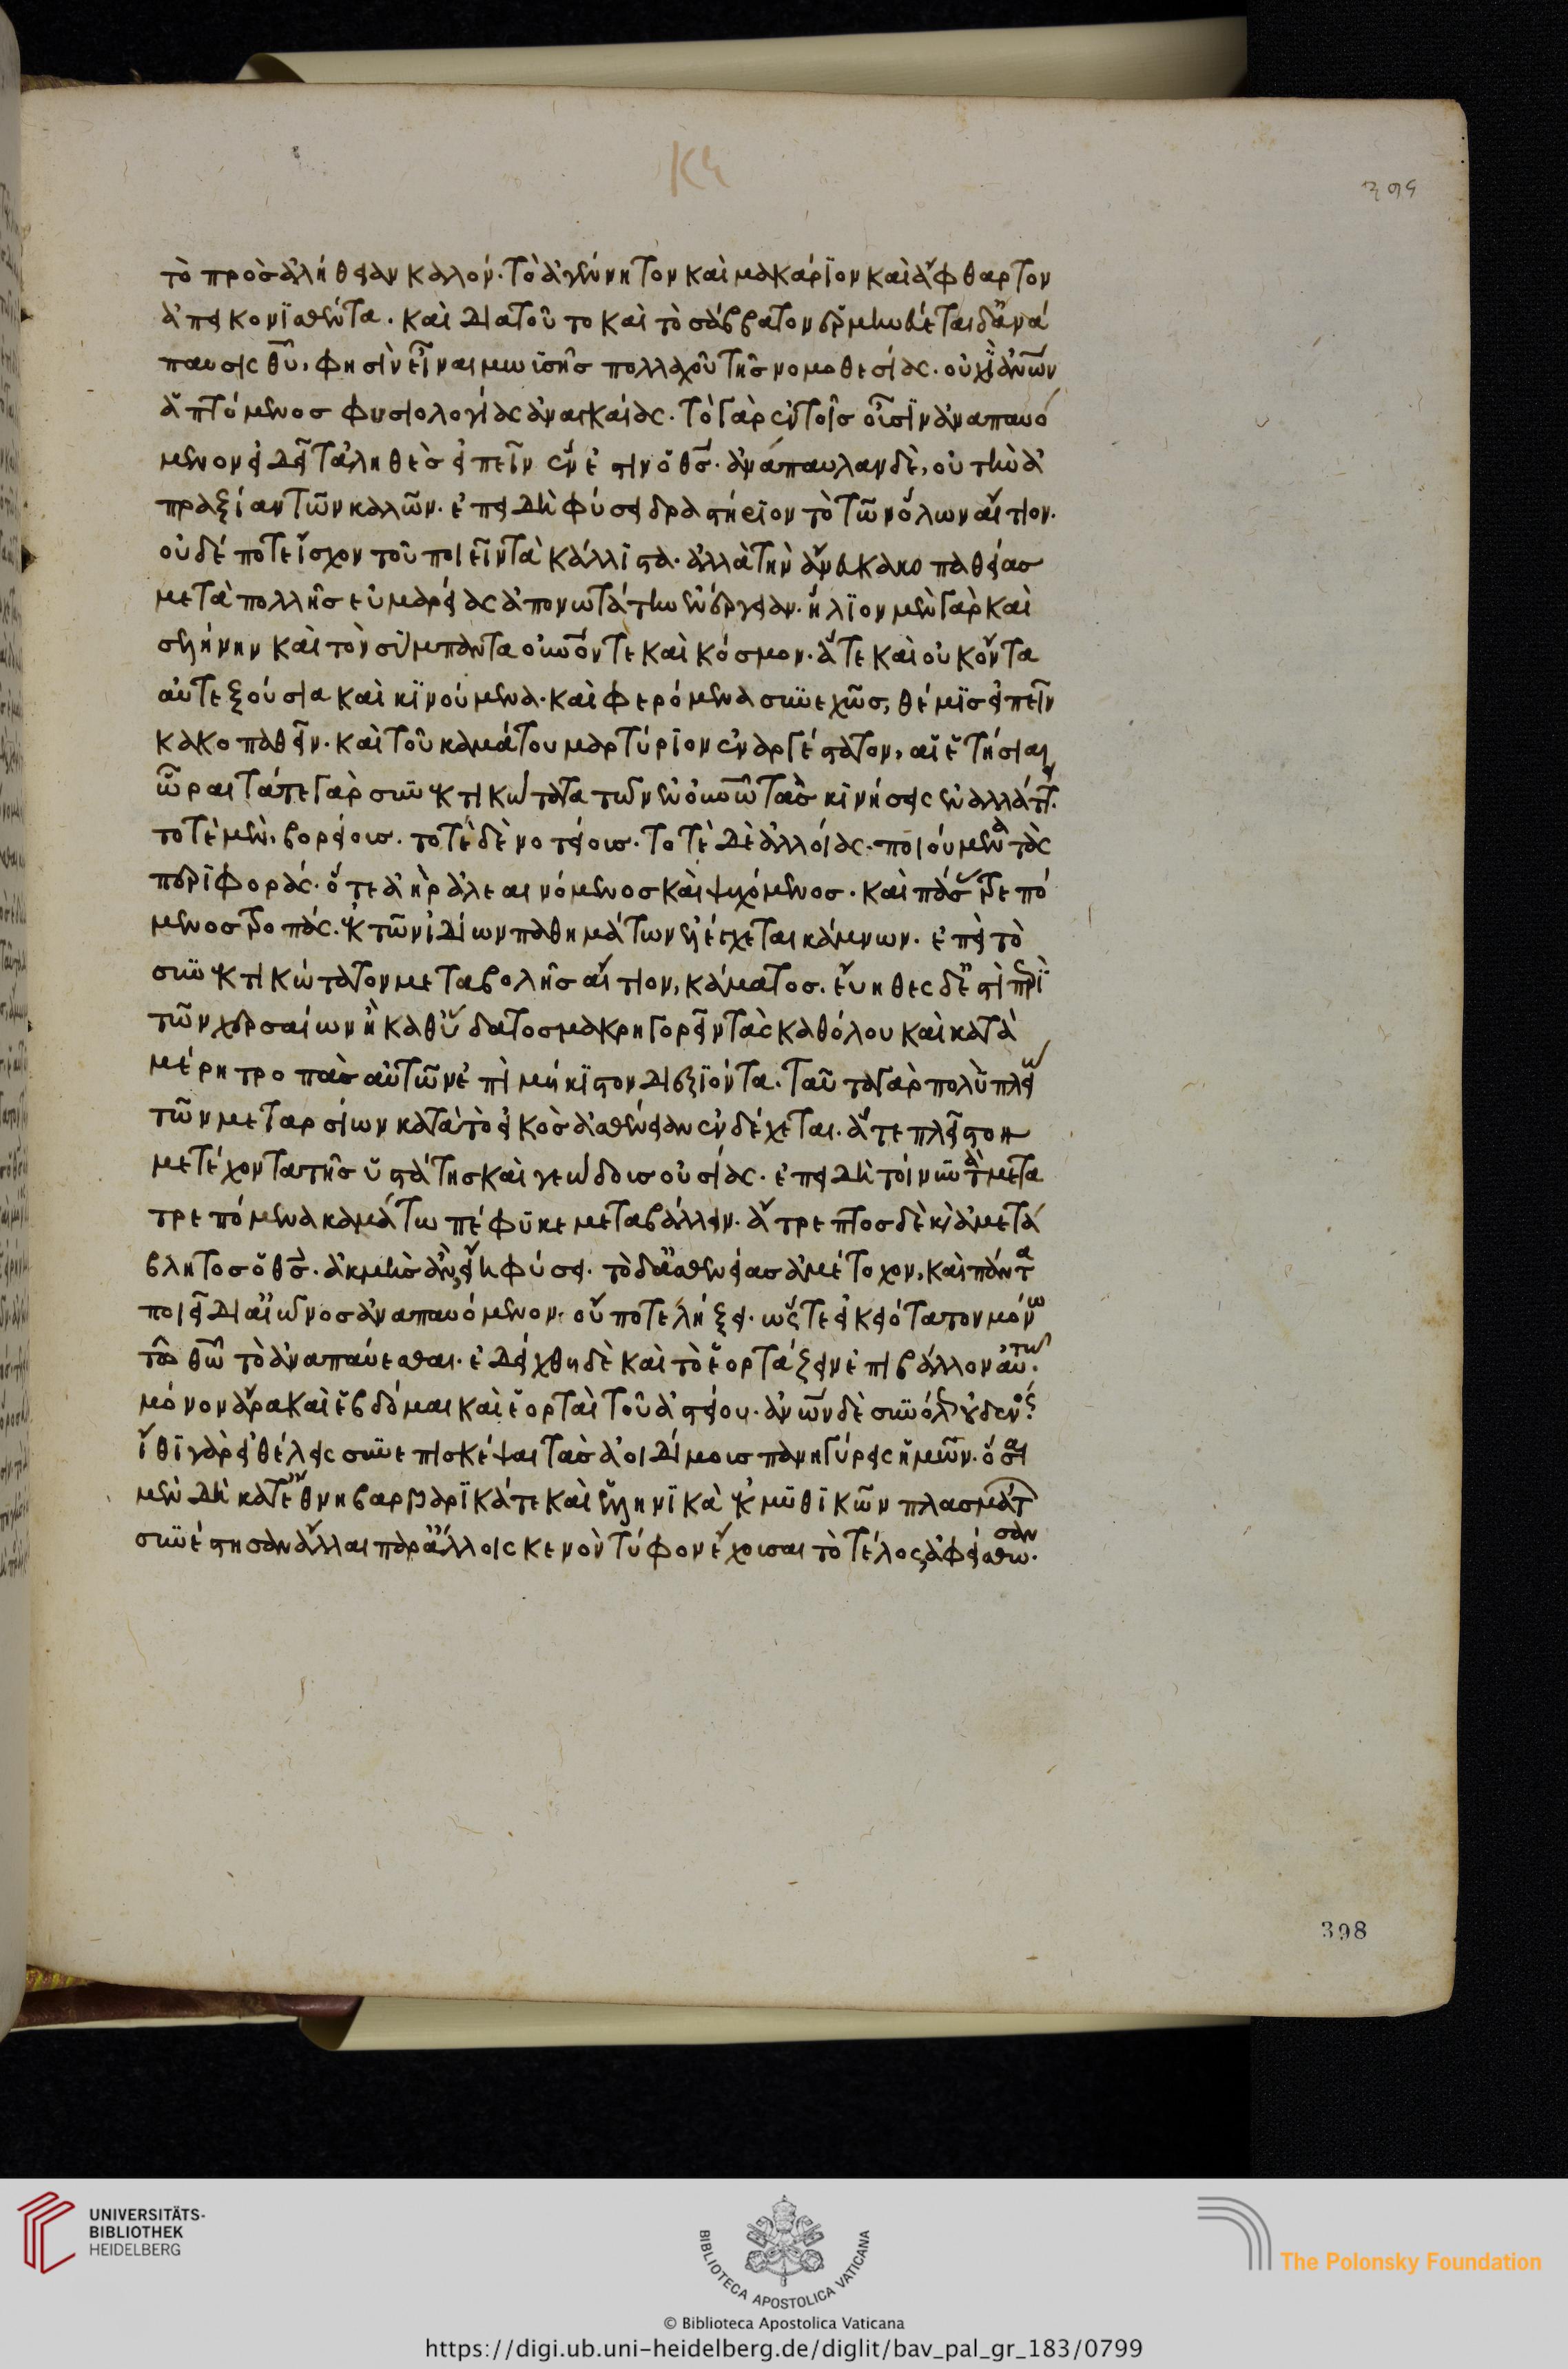 κς
395
τὸ πρὸς ἀλήθειαν καλόν· τὸ ἀγένητον καὶ μακάριον καὶ ἄφθαρτον
ἀπεικονισθέντα. καὶ διατοῦτο καὶ τὸ σάββατον ἑρμηνεύεται δ' ἀνά
παυσις θῦ, φησὶν εἶναι μωϊσῆς πολλαχοῦ τῆς νομοθεσίας. οὐχὶ ἀνῶν
ἁπτόμενος φυσιολογίας ἀναγκαίας. τὸ γὰρ ἐν τοῖς οὖσιν ἀναπαυό
μενον εἰ δεῖ τἀληθὲς εἰπεῖν ἕν ἐστιν ὁ θς. ἀνάπαυλαν δὲ, οὐ τὴν ἀ
πραξίαν τῶν καλῶν. ἐπειδὴ φύσει δραστήριον τὸ τῶν ὅλων αἴτιον.
οὐδέποτε ἴσχον τοῦ ποιεῖν τὰ κάλλιστα. ἀλλὰ τὴν ἄνευ κακοπαθείας
μετὰ πολλῆς εὐμαρείας ἀπονωτάτην ἐνέργειαν. ἥλιον μὲν γὰρ καὶ
σελήνην καὶ τὸν σύμπαντα οὐνόν τε καὶ κόσμον. ἅτε καὶ οὐκ ὄντα
αὐτεξούσια καὶ κινούμενα. καὶ φερόμενα συνεχῶς, θέμις εἰπεῖν
κακοπαθεῖν. καὶ τοῦ καμάτου μαρτύριον ἐναργέστατον, αἱ ἐτήσιαι
ὧραι τάτε γὰρ συνεκτικώτατα τῶν ἐν οὐνῶ τὰς κινήσεις ἐναλλάττει.
τοτὲ μὲν, βορείους. τοτὲ δὲ νοτείους. τοτὲ δὲ ἀλλοίας. ποιούμενα τὰς
περιφοράς. ὅτε ἀὴρ ἀλεαινόμενος καὶ ψυχόμενος. καὶ πάσας τρεπό
μενος τροπάς. ἐκ τῶν ἰδίων παθημάτων ἐλέγχεται κάμνων. ἐπεὶ τὸ
συνεκτικώτατον μεταβολῆς αἴτιον, κάματος. εὔηθες δ' ἐστὶ περὶ
τῶν χερσαίων ἢ καθ' ὕδατος μακρηγορεῖν τὰς καθόλου καὶ κατὰ
μέρη τροπὰς αὐτῶν ἐπὶ μήκιστον διεξιόντα. ταῦτα γὰρ πολὺ πλείω
τῶν μεταρσίων κατὰ τὸ εἰκὸς ἀσθένειαν ἐνδέχεται. ἅτε πλεῖστον
μετέχοντα τῆς ὑστάτης καὶ γεώδους οὐσίας. ἐπειδὴ τοίνυν τὰ μετα
τρεπόμενα καμάτω πέφυκε μεταβάλλειν. ἄτρεπτος δὲ κ ἀμετά
βλητος ὁ θς. ἀκμὴς ἂν εἴη φύσει. τὸ δ' ἀσθενείας ἀμέτοχον, καὶ πάντα
ποιεῖ δι' αἰῶνος ἀναπαυόμενον. οὔποτε λήξει. ὥστε εἰκειότατον μόνω
τῶ θῶ τὸ ἀναπαύεσθαι. ἐδείχθη δὲ καὶ τὸ ἑορτάζειν ἐπιβάλλον αὐτῶ.
μόνον ἄρα καὶ ἑβδόμαι καὶ ἑορταὶ τοῦ ἀγείου. ἀνῶν δὲ συνόλως οὐδενός.
ἴθι γὰρ εἰ θέλεις συνεπισκέψαι τὰς ἀοιδίμους πανηγύρεις ἡμῶν. ὅσαι
μὲν δὴ κατ' ἔθνη βαρβαρικά τε καὶ ἑλληνικὰ ἐκ μυθικῶν πλασμάτ
συνέστησαν ἄλλαι παρ' ἄλλοις κενὸν τύφον ἔχουσαι τὸ τέλος, ἀφείσθωσαν.
398
UNIVERSITÄTS-
BIBLIOTHEK
HEIDELBERG
BIBLIOTECA APOSTOLICA VATICANA
The Polonsky Foundation
© Biblioteca Apostolica Vaticana
https://digi.ub.uni-heidelberg.de/diglit/bav_pal_gr_183/0799